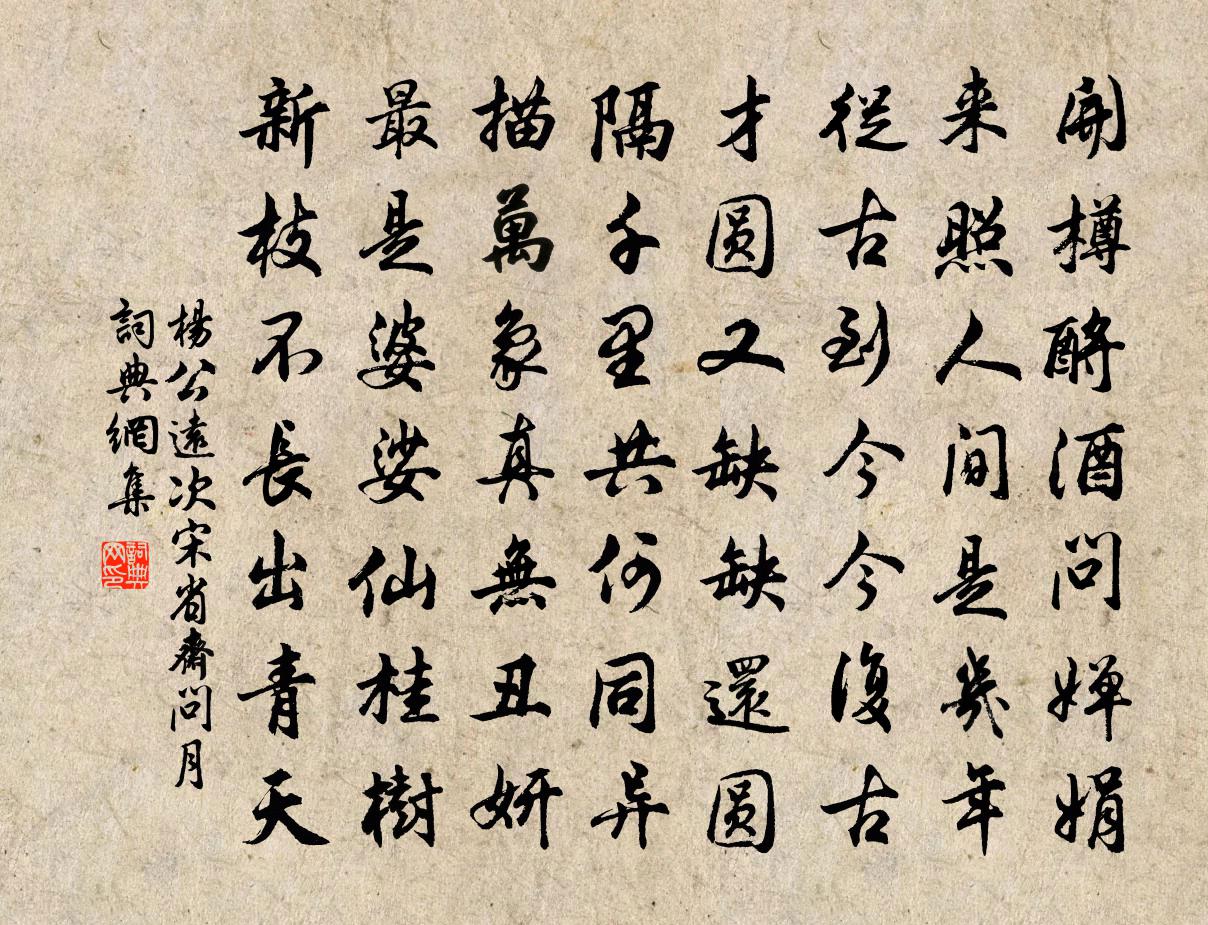 開樽酹酒問嬋娟
来照人间是幾年
從古到今今復古
才圓又缺缺還圓
隔千里共何同异
描萬象真無丑妍
最是婆娑仙桂樹
新枝不長出青天
楊公遠次宋省齋問月
詞典網集
詞典网印